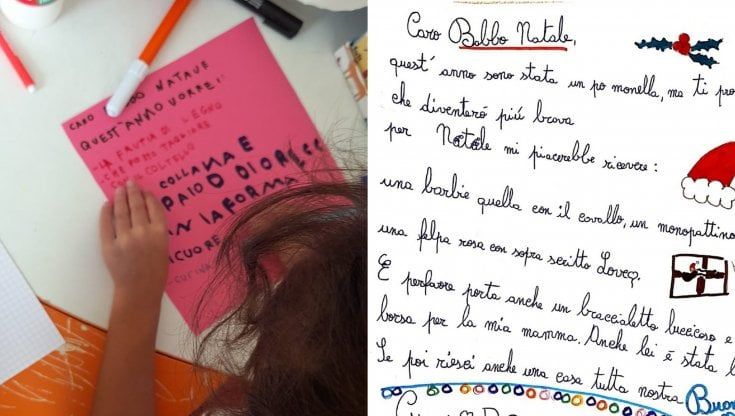 CARO NATALE
QUEST'ANNO VORREI
-LA DI LEGNO
-CHE TAGLIARE
COLTELLO
COLLANA E
PAIO D
IN LA FORMA
CUORE
Caro Babbo Natale,
quest'anno sono stata un po monella, ma ti pro
che diventeró piú brava
per Natale mi piacerebbe ricevere:
una barbie quella con il cavallo, un monopattino
una felpa rosa con sopra scritto Love
E perfavore porta anche un braccialetto luccicoso e
borsa per la mia mamma. Anche lei é stata b
Se poi riesci anche una casa tutta nostra
Buon